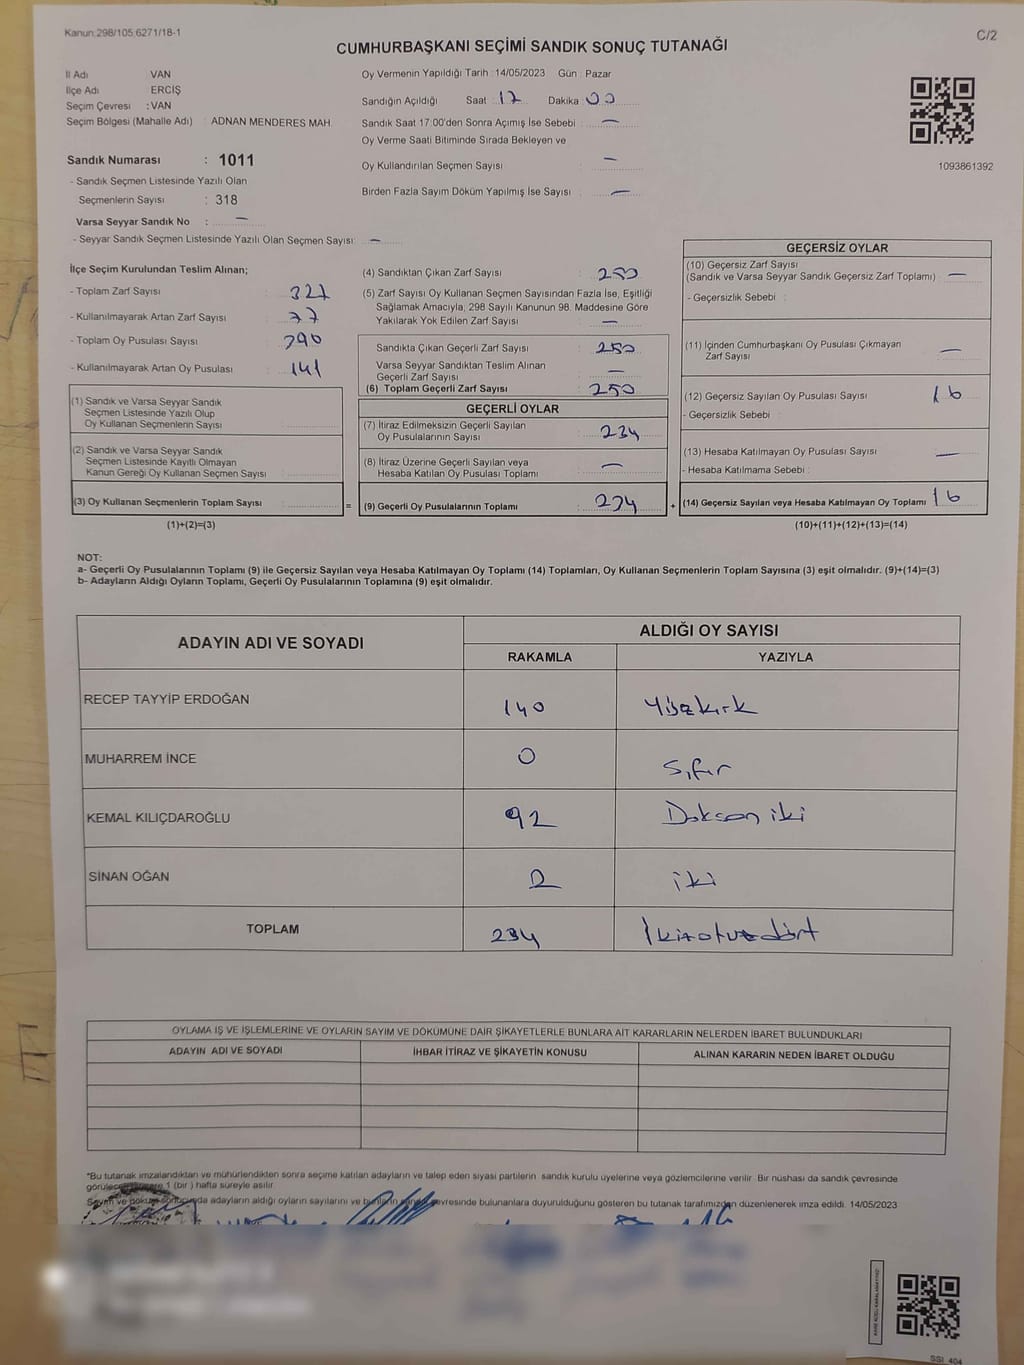 Kanun:298/105,6271/18-1
C/2
CUMHURBAŞKANI SEÇİMİ SANDIK SONUÇ TUTANAĞI
İl Adı : VAN
İlçe Adı : ERCİŞ
Seçim Çevresi : VAN
Seçim Bölgesi (Mahalle Adı) : ADNAN MENDERES MAH.
Oy Vermenin Yapıldığı Tarih : 14/05/2023 Gün : Pazar
Sandığın Açıldığı Saat : 17 Dakika 00
Sandık Saat 17:00'den Sonra Açımış İse Sebebi : —
Oy Verme Saati Bitiminde Sırada Bekleyen ve
Oy Kullandırılan Seçmen Sayısı : —
Birden Fazla Sayım Döküm Yapılmış İse Sayısı : —
1093861392
Sandık Numarası : 1011
- Sandık Seçmen Listesinde Yazılı Olan
Seçmenlerin Sayısı : 318
Varsa Seyyar Sandık No : —
- Seyyar Sandık Seçmen Listesinde Yazılı Olan Seçmen Sayısı: —
İlçe Seçim Kurulundan Teslim Alınan;
- Toplam Zarf Sayısı : 327
- Kullanılmayarak Artan Zarf Sayısı : 77
- Toplam Oy Pusulası Sayısı : 390
- Kullanılmayarak Artan Oy Pusulası : 141
(1) Sandık ve Varsa Seyyar Sandık
Seçmen Listesinde Yazılı Olup
Oy Kullanan Seçmenlerin Sayısı :
(2) Sandık ve Varsa Seyyar Sandık
Seçmen Listesinde Kayıtlı Olmayan
Kanun Gereği Oy Kullanan Seçmen Sayısı :
(3) Oy Kullanan Seçmenlerin Toplam Sayısı : =
(1)+(2)=(3)
(4) Sandıktan Çıkan Zarf Sayısı : 250
(5) Zarf Sayısı Oy Kullanan Seçmen Sayısından Fazla İse, Eşitliği
Sağlamak Amacıyla, 298 Sayılı Kanunun 98. Maddesine Göre
Yakılarak Yok Edilen Zarf Sayısı : —
Sandıkta Çıkan Geçerli Zarf Sayısı : 250
Varsa Seyyar Sandıktan Teslim Alınan
Geçerli Zarf Sayısı : —
(6) Toplam Geçerli Zarf Sayısı : 250
GEÇERLİ OYLAR
(7) İtiraz Edilmeksizin Geçerli Sayılan
Oy Pusulalarının Sayısı : 234
(8) İtiraz Üzerine Geçerli Sayılan veya
Hesaba Katılan Oy Pusulası Toplamı : —
(9) Geçerli Oy Pusulalarının Toplamı : 234 +
GEÇERSİZ OYLAR
(10) Geçersiz Zarf Sayısı
(Sandık ve Varsa Seyyar Sandık Geçersiz Zarf Toplamı) : —
- Geçersizlik Sebebi :
(11) İçinden Cumhurbaşkanı Oy Pusulası Çıkmayan
Zarf Sayısı : —
(12) Geçersiz Sayılan Oy Pusulası Sayısı : 16
- Geçersizlik Sebebi :
(13) Hesaba Katılmayan Oy Pusulası Sayısı : —
- Hesaba Katılmama Sebebi :
(14) Geçersiz Sayılan veya Hesaba Katılmayan Oy Toplamı : 16
(10)+(11)+(12)+(13)=(14)
NOT:
a- Geçerli Oy Pusulalarının Toplamı (9) ile Geçersiz Sayılan veya Hesaba Katılmayan Oy Toplamı (14) Toplamları, Oy Kullanan Seçmenlerin Toplam Sayısına (3) eşit olmalıdır. (9)+(14)=(3)
b- Adayların Aldığı Oyların Toplamı, Geçerli Oy Pusulalarının Toplamına (9) eşit olmalıdır.
ADAYIN ADI VE SOYADI ALDIĞI OY SAYISI
RAKAMLA YAZIYLA
RECEP TAYYİP ERDOĞAN 140 Yüzkırk
MUHARREM İNCE 0 Sıfır
KEMAL KILIÇDAROĞLU 92 Doksan iki
SİNAN OĞAN 2 iki
TOPLAM 234 İkizotuzdört
OYLAMA İŞ VE İŞLEMLERİNE VE OYLARIN SAYIM VE DÖKÜMÜNE DAİR ŞİKAYETLERLE BUNLARA AİT KARARLARIN NELERDEN İBARET BULUNDUKLARI
ADAYIN ADI VE SOYADI İHBAR İTİRAZ VE ŞİKAYETİN KONUSU ALINAN KARARIN NEDEN İBARET OLDUĞU
*Bu tutanak imzalandıktan ve mühürlendikten sonra seçime katılan adayların ve talep eden siyasi partilerin sandık kurulu üyelerine veya gözlemcilerine verilir. Bir nüshası da sandık çevresinde
görülecek yere 1 (bir) hafta süreyle asılır.
Sayım ve döküm sonucunda adayların aldığı oyların sayılarını ve bunların sandık çevresinde bulunanlara duyurulduğunu gösteren bu tutanak tarafımızdan düzenlenerek imza edildi. 14/05/2023
SSI 404